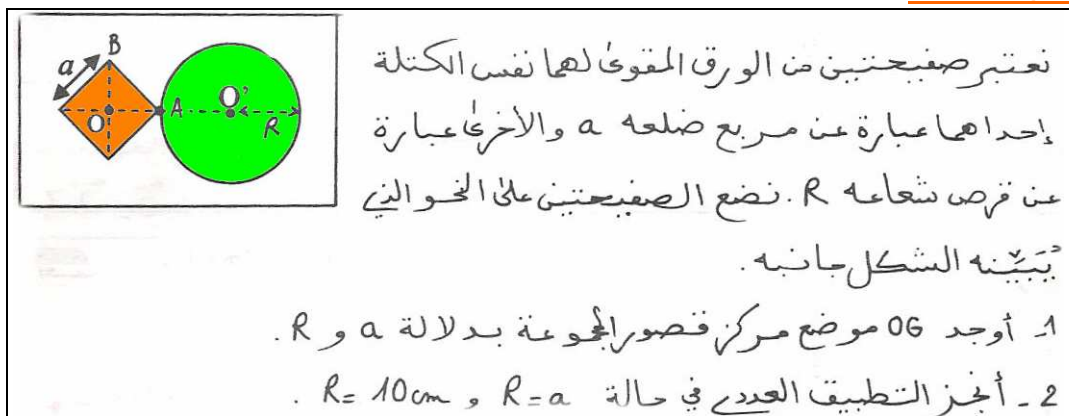 B
a
O
A
O'
R
نعتبر صفيحتين من الورق المقوى لهما نفس الكتلة
إحداهما عبارة عن مربع ضلعه a والأخرى عبارة
عن قرص شعاعه R. نضع الصفيحتين على النحو الذي
يُبَيِّنه الشكل جانبه.
1ـ أوجد OG موضع مركز قصور المجموعة بدلالة a و R.
2ـ أنجز التطبيق العددي في حالة R=a و R=10cm.